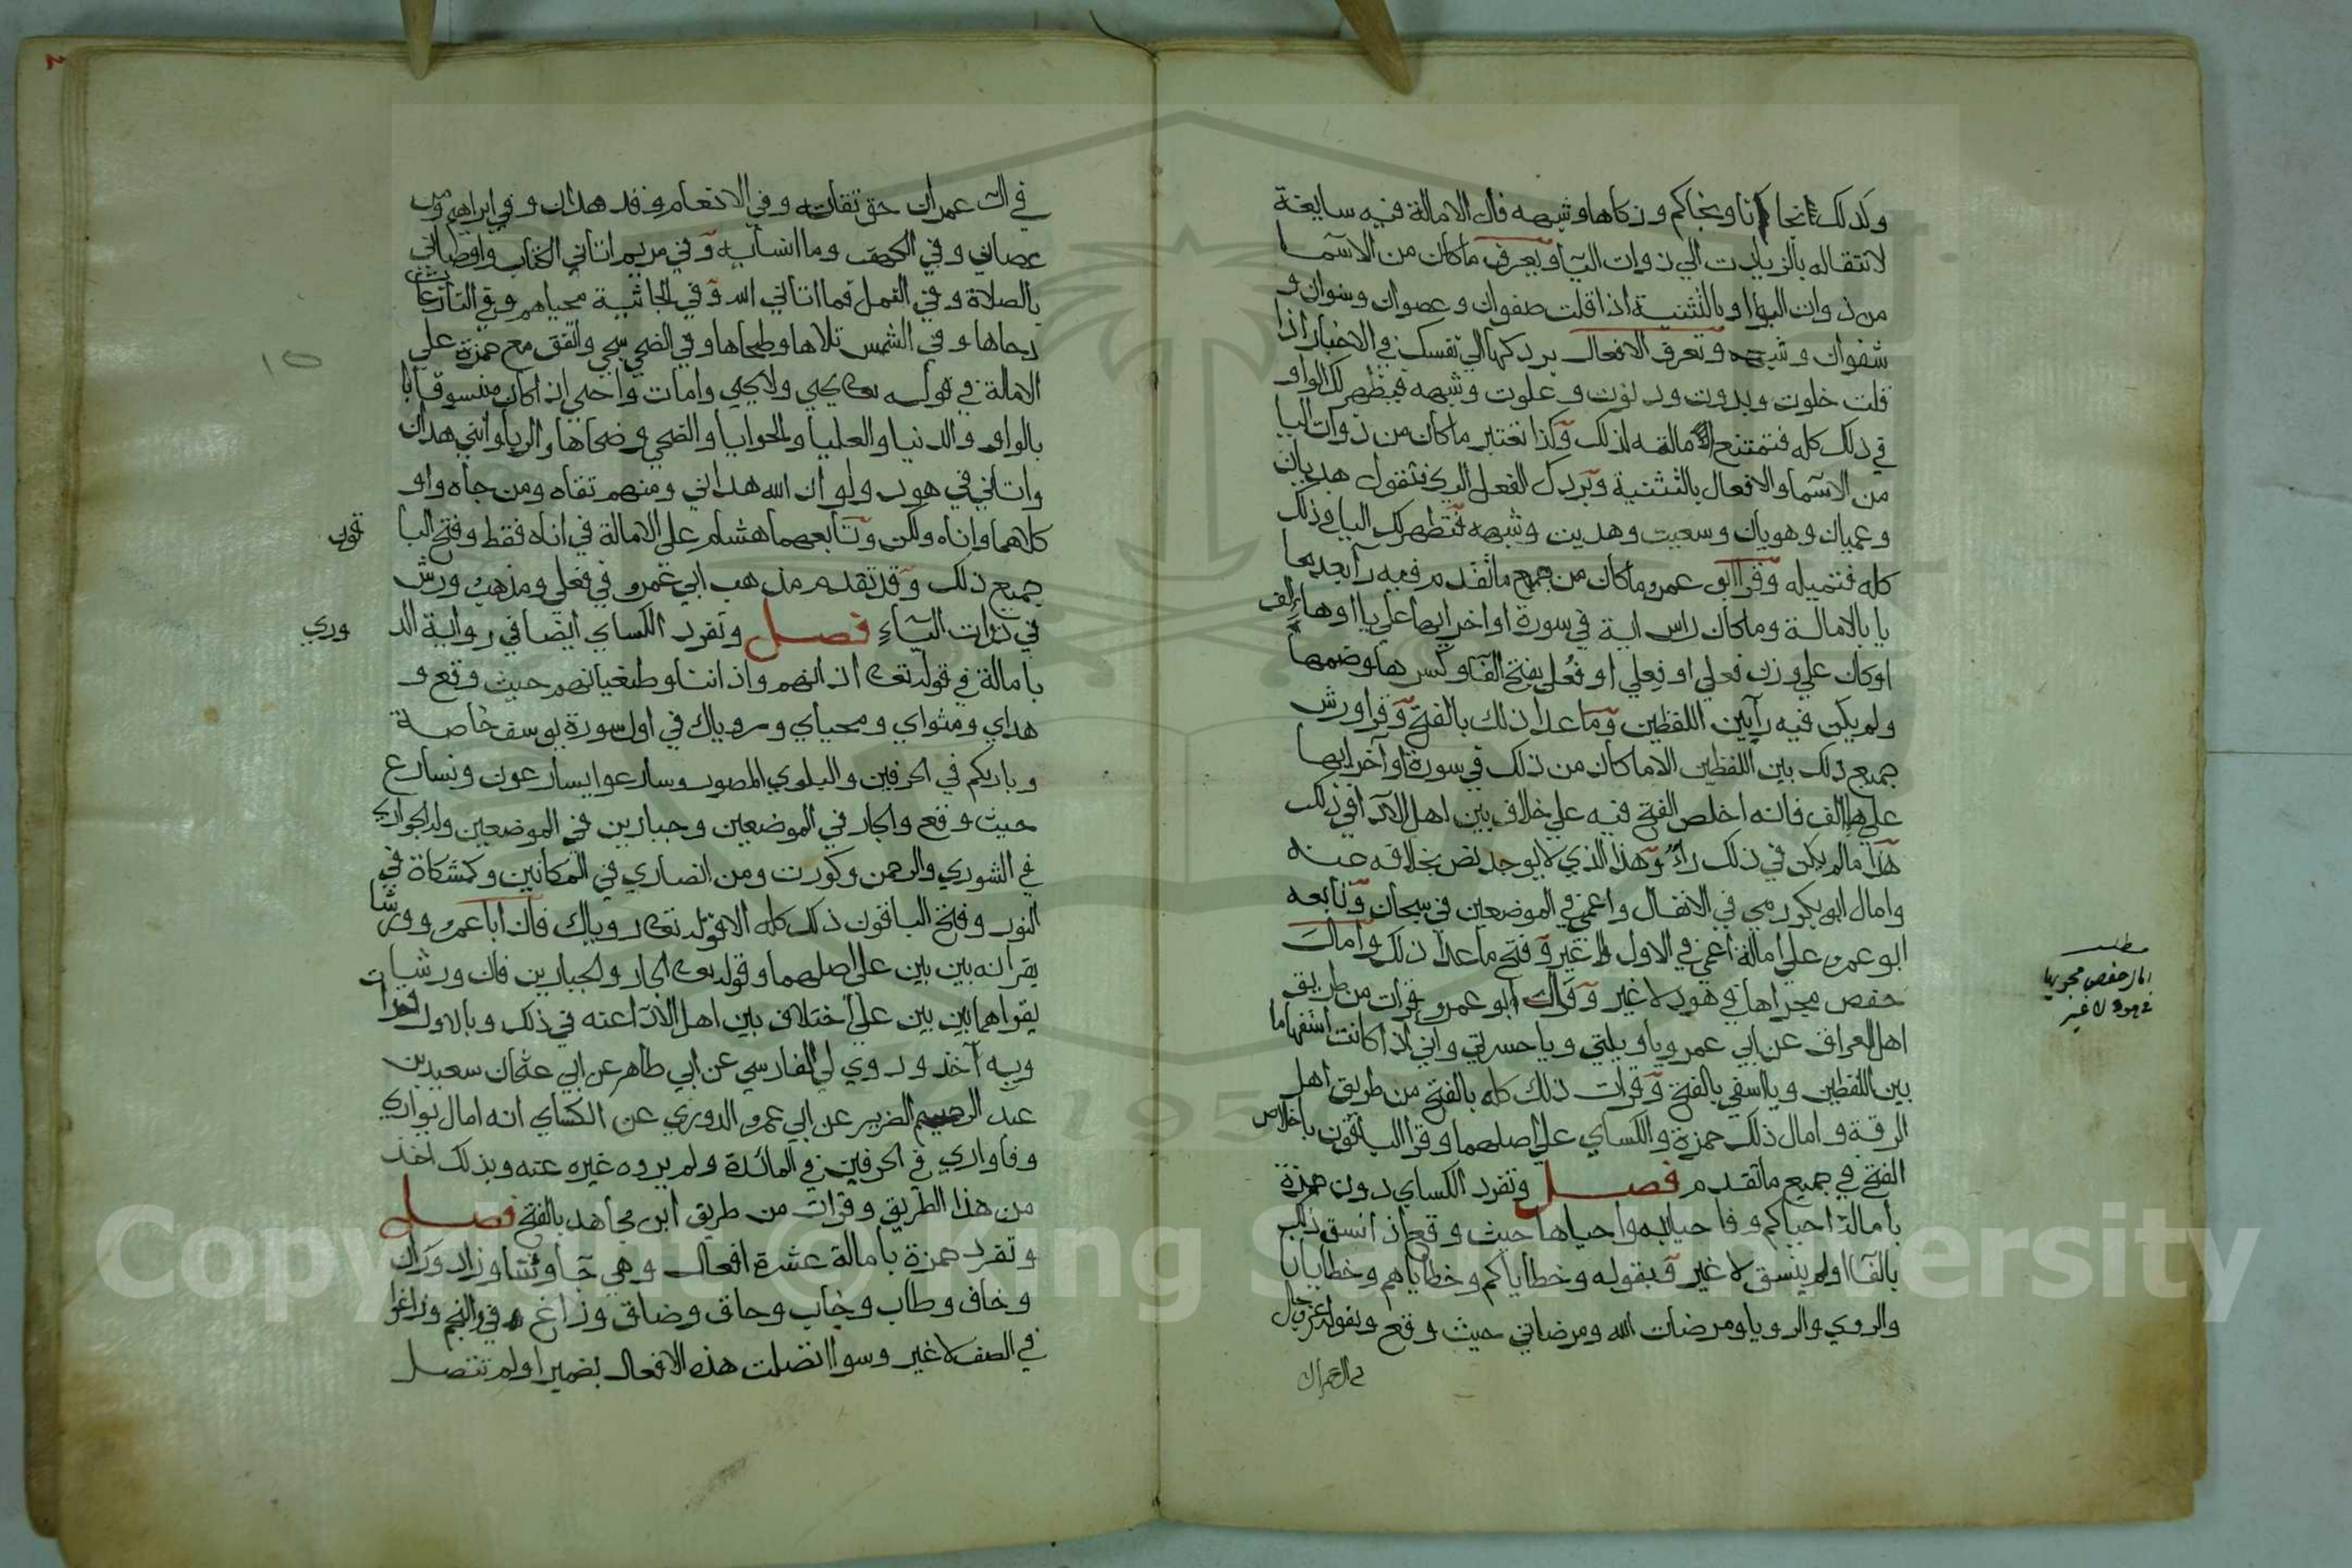 وكذلك انجانا ونجاكم وزكاها وشبهه فان الامالة فيه سايغة
لانتقاله بالزيادت الي ذوات اليا وتعرف ماكان من الاسما
من ذوات الواو بالتثنية اذا قلت صفوان وعصوان وسنوان و
شفوان وشبهه وتعرف الافعال بردكها الي نفسك في الاخبار اذا
قلت خلوت وبدوت ودنوت وعلوت وشبهه فيظهر لك الواو
في ذلك كله فتمتنع الامالة لذلك وكذا تعتبر ماكان من ذوات اليا
من الاسما والافعال بالتثنية وبردك الفعل اليك فتقول هديان
وعميان وهويان وسعيت وهديت وشبهه فتظهر لك اليا في ذلك
كله فتميله وقرا ابو عمرو ماكان من جميع ماتقدم فيه را بعدها
يا بالامالة وماكان راس اية في سورة اواخر ايها علي يا او ها الف
اوكان علي وزن فعلي او فِعلي او فُعلي بفتح الفا وكسرها وضمها
ولم يكن فيه را بين اللفظين وما عدا ذلك بالفتح وقرا ورش
جميع ذلك بين اللفظين الا ماكان من ذلك في سورة اواخر ايها
علي ها الف فانه اخلص الفتح فيه علي خلاف بين اهل الادا في ذلك
هذا مالم يكن في ذلك راء وهذا الذي لا يوجد نص بخلافه عنه
وامال ابو بكر رمي في الانفال واعمي في الموضعين في سبحان وتابعه
ابو عمرو علي امالة اعمي في الاول لا غير وفتح ما عدا ذلك وامال
حفص مجراها في هود لا غير وقال ابو عمرو قرات من طريق
اهل العراق عن ابي عمرو ياويلتي وياحسرتي واني اذا كانت استفهاما
بين اللفظين ويااسفي بالفتح وقرات ذلك كله بالفتح من طريق اهل
الرقة وامال ذلك حمزة والكساي علي اصلهما وقرا الباقون باخلاص
الفتح في جميع ماتقدم فصل وتفرد الكساي دون حمزة
بامالة احياكم وفاحيا به واحياها حيث وقع اذ انسق ذلك
بالفا او لم ينسق لا غير وبقوله وخطاياكم وخطاياهم وخطايانا
والروي والرويا ومرضات الله ومرضاتي حيث وقع وبقوله عز وجل
في ال عمران
مطلب
امال حفص مجريها
في هود لا غير
في ال عمران حق تقاته وفي الانعام وقد هدان وفي ابراهيم ومن
عصاني وفي الكهف وما انسانيه وفي مريم اتاني الكتاب واوصاني
بالصلاة وفي النمل فما اتاني الله وفي الجاثية محياهم وفي النازعات
دحاها وفي الشمس تلاها وطحاها وفي الضحي سجي واتفق مع حمزة علي
الامالة في قوله تعا يحيي ولا يحيي وامات واحيي اذ اكان منسوقا
بالواو والدنيا والعليا والحوايا والضحي وضحاها والربا وانني هدان
واتاني في هود ولو ان الله هداني ومنهم تقاه ومن جاه واو
كلاهما واناه ولكن وتابعهما هشام علي الامالة في اناه فقط وفتح البا
قون
جميع ذلك وقد تقدم مذهب ابي عمرو في فعلي ومذهب ورش
في ذوات الياء فصل وتفرد الكساي ايضا في رواية الد
وري
بامالة في قوله تعا اذانهم واذاننا وطغيانهم حيث وقع و
هداي ومثواي ومحياي ورؤياك في اول سورة يوسف خاصة
وباريكم في الحرفين والبلوي المصور وسارعوا يسارعون ونسارع
حيث وقع والجار في الموضعين وجبارين في الموضعين والجواري
في الشوري والرحمن وكورت ومن انصاري في المكانين وكمشكاة في
النور وفتح الباقون ذلك كله الا قوله تعا روياك فان ابا عمرو وورشا
يقرانه بين بين علي اصلهما وقوله تعا الجار والجبارين فان ورشا
يقراهما بين بين علي اختلاف بين اهل الادا عنه في ذلك وبالاول قرات
وبه اخذ وروي لي الفارسي عن ابي طاهر عن ابي عثمان سعيد بن
عبد الرحيم الضرير عن ابي عمرو الدوري عن الكساي انه امال يواري
وفاواري في الحرفين في المائدة ولم يروه غيره عنه وبذلك اخذ
من هذا الطريق وقرات من طريق ابن مجاهد بالفتح فصل
وتفرد حمزة بامالة عشرة افعال وهي جا وشا وزاد وران
وخاف وطاب وخاب وحاق وضاق وزاغ في والنجم وزاغوا
في الصف لا غير وسوا اتصلت هذه الافعال بضمير او لم تتصل
Copyright © King Saud University
1957